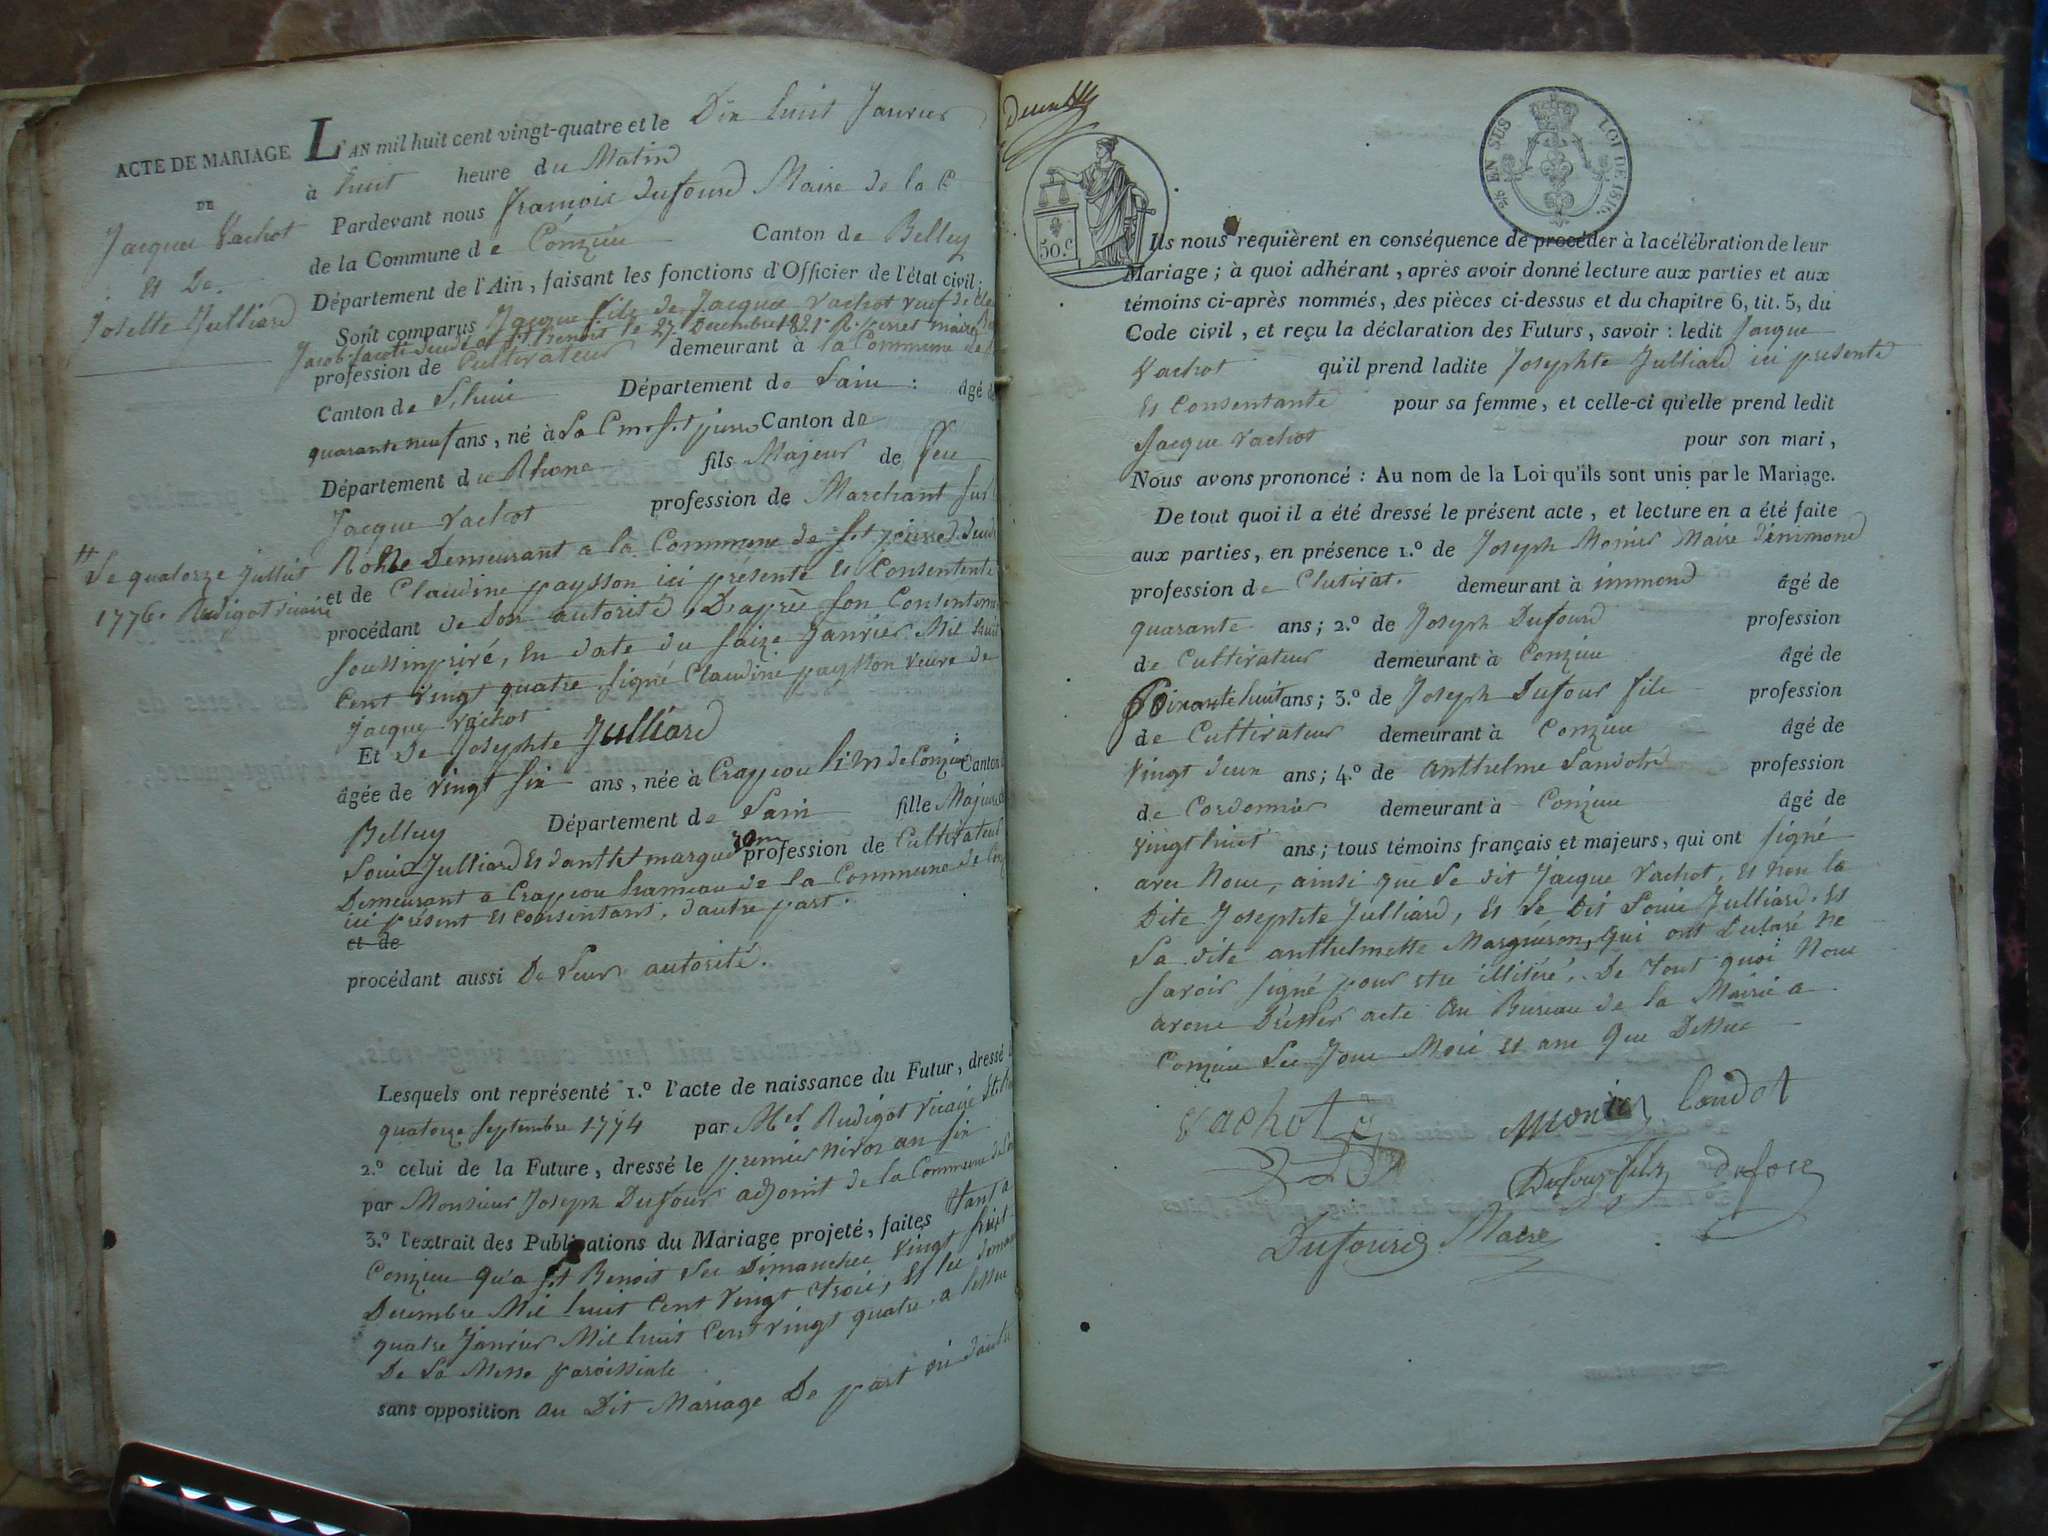 ACTE DE MARIAGE
DE
Jacque Vachot
Et De
Josette Julliard
L'AN mil huit cent vingt-quatre et le Dix huit Janvier
à huit heure du Matin
Pardevant nous François Dufourd Maire de la C
de la Commune de Conzieu Canton de Belley
Département de l'Ain, faisant les fonctions d'Officier de l'état civil;
Sont comparus Jacque fils de Jacque Vachot veuf de
Benoit le 27 Decembre 1821 maire
profession de Cultivateur demeurant à la Commune de
Canton de Département de Lain : âgé de
quarante neuf ans, né à La Cme St pierre Canton de
Département du Rhone fils Majeur de feu
Jacque Vachot profession de Marchant
Demeurant a la Commune de St
et de Claudine paysson ici présente Et Consentente
procédant de Son autorité, Daprès Son Consenteme
soussinprivé, En date du Saize Janvier Mil huit
Cent Vingt quatre Signé Claudine paysson veuve de
Jacque Vachot
# Le quatorze Julliet
1776. Rudigot vicaire
Et de Josephte Julliard
âgée de vingt Six ans, née à Crappeou de Conzieu Canton
Belley Département de Lain fille Majeure
Louis Julliard Et danthet margueron profession de Cultivateur
Demeurant a Crappeou hameau de la Commune de Con
ici présent Et consentant, dautre part.
et de
procédant aussi De Leur autorité.
Lesquels ont représenté 1.º l'acte de naissance du Futur, dressé
quatorze Septembre 1774 par Mel. Rudigot vicaire
2.º celui de la Future, dressé le premier nivoz an Six
par Monsieur Joseph Dufour adjoint de la Commune de
3.º l'extrait des Publications du Mariage projeté, faites tant a
Conzieu qu'a St Benoit Les Dimanches vingt huit
Decembre Mil huit Cent Vingt Trois, Et le
quatre Janvier Mil huit Cent vingt quatre a lissue
De La Messe paroissiale
sans opposition au Dit Mariage De part ni dautre
50 C.
2/10 EN SUS LOI DE 1816.
Ils nous requièrent en conséquence de procéder à la célébration de leur
Mariage; à quoi adhérant, après avoir donné lecture aux parties et aux
témoins ci-après nommés, des pièces ci-dessus et du chapitre 6, tit. 5, du
Code civil, et reçu la déclaration des Futurs, savoir : ledit Jacque
Vachot qu'il prend ladite Josephte Julliard ici présente
Et Consentante pour sa femme, et celle-ci qu'elle prend ledit
Jacque Vachot pour son mari,
Nous avons prononcé : Au nom de la Loi qu'ils sont unis par le Mariage.
De tout quoi il a été dressé le présent acte, et lecture en a été faite
aux parties, en présence 1.º de Joseph Monier Maire dimmond
profession de Clutivat. demeurant à immond âgé de
quarante ans; 2.º de Joseph Dufourd profession
de Cultivateur demeurant à Conzieu âgé de
Soixante huit ans; 3.º de Joseph Dufour fils profession
de Cultivateur demeurant à Conzieu âgé de
Vingt deux ans; 4.º de Anthelme Landot profession
de Cordonnier demeurant à Conzieu âgé de
vingt huit ans; tous témoins français et majeurs, qui ont Signé
avec Nous, ainsi que Le dit Jacque Vachot, Et non la
Dite Josephte Julliard, Et Le Dit Louis Julliard. Et
La dite anthelmette Marguéron, qui ont Declaré ne
Savoir Signé pour etre illitéré. De tout quoi Nous
avons Dresser acte Au Bureau de la Mairie a
Conzieu Les Jour Mois Et an Que Dessus
Vachot
Monier
Landot
Dufour fils
dufour
Dufourd Maire